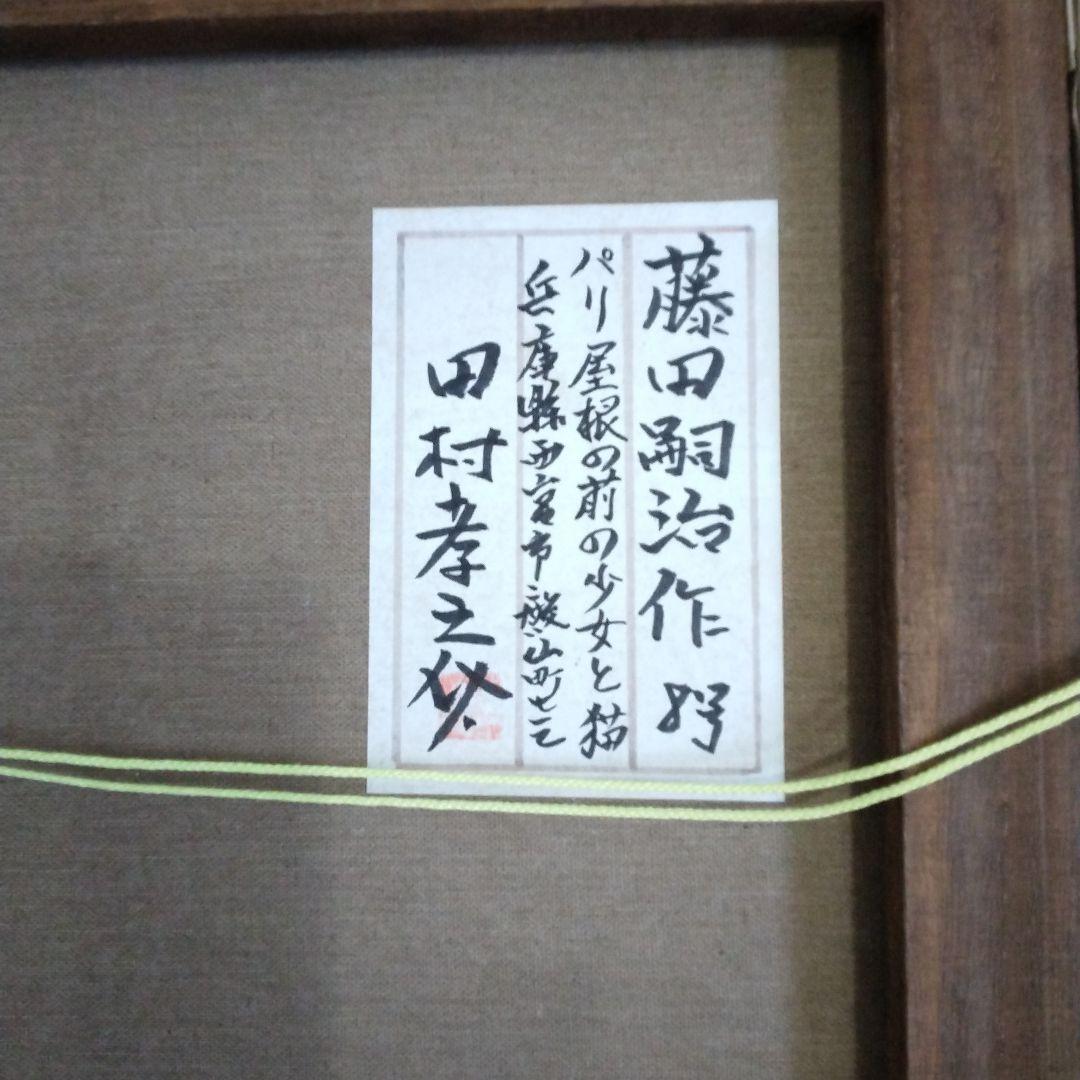 藤田嗣治作 8号
パリ屋根の前の少女と猫
兵庫縣西宮市殿山町七二
田村孝之介